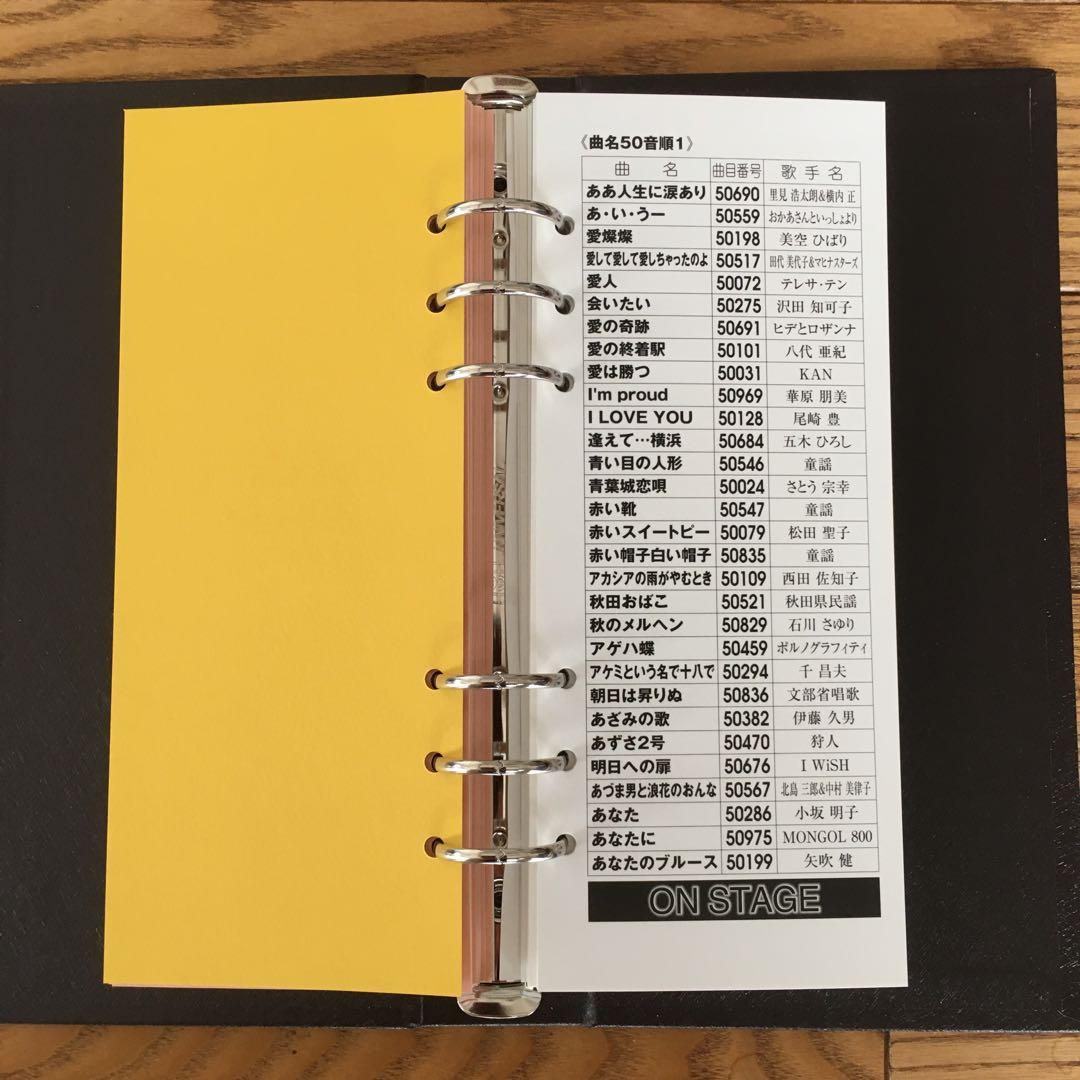 《曲名50音順1》
曲名 曲目番号 歌手名
ああ人生に涙あり 50690 里見 浩太朗&横内 正
あ・い・うー 50559 おかあさんといっしょより
愛燦燦 50198 美空 ひばり
愛して愛して愛しちゃったのよ 50517 田代 美代子&マヒナスターズ
愛人 50072 テレサ・テン
会いたい 50275 沢田 知可子
愛の奇跡 50691 ヒデとロザンナ
愛の終着駅 50101 八代 亜紀
愛は勝つ 50031 KAN
I'm proud 50969 華原 朋美
I LOVE YOU 50128 尾崎 豊
逢えて…横浜 50684 五木 ひろし
青い目の人形 50546 童謡
青葉城恋唄 50024 さとう 宗幸
赤い靴 50547 童謡
赤いスイートピー 50079 松田 聖子
赤い帽子白い帽子 50835 童謡
アカシアの雨がやむとき 50109 西田 佐知子
秋田おばこ 50521 秋田県民謡
秋のメルヘン 50829 石川 さゆり
アゲハ蝶 50459 ポルノグラフィティ
アケミという名で十八で 50294 千 昌夫
朝日は昇りぬ 50836 文部省唱歌
あざみの歌 50382 伊藤 久男
あずさ2号 50470 狩人
明日への扉 50676 I WiSH
あづま男と浪花のおんな 50567 北島 三郎&中村 美律子
あなた 50286 小坂 明子
あなたに 50975 MONGOL 800
あなたのブルース 50199 矢吹 健
ON STAGE